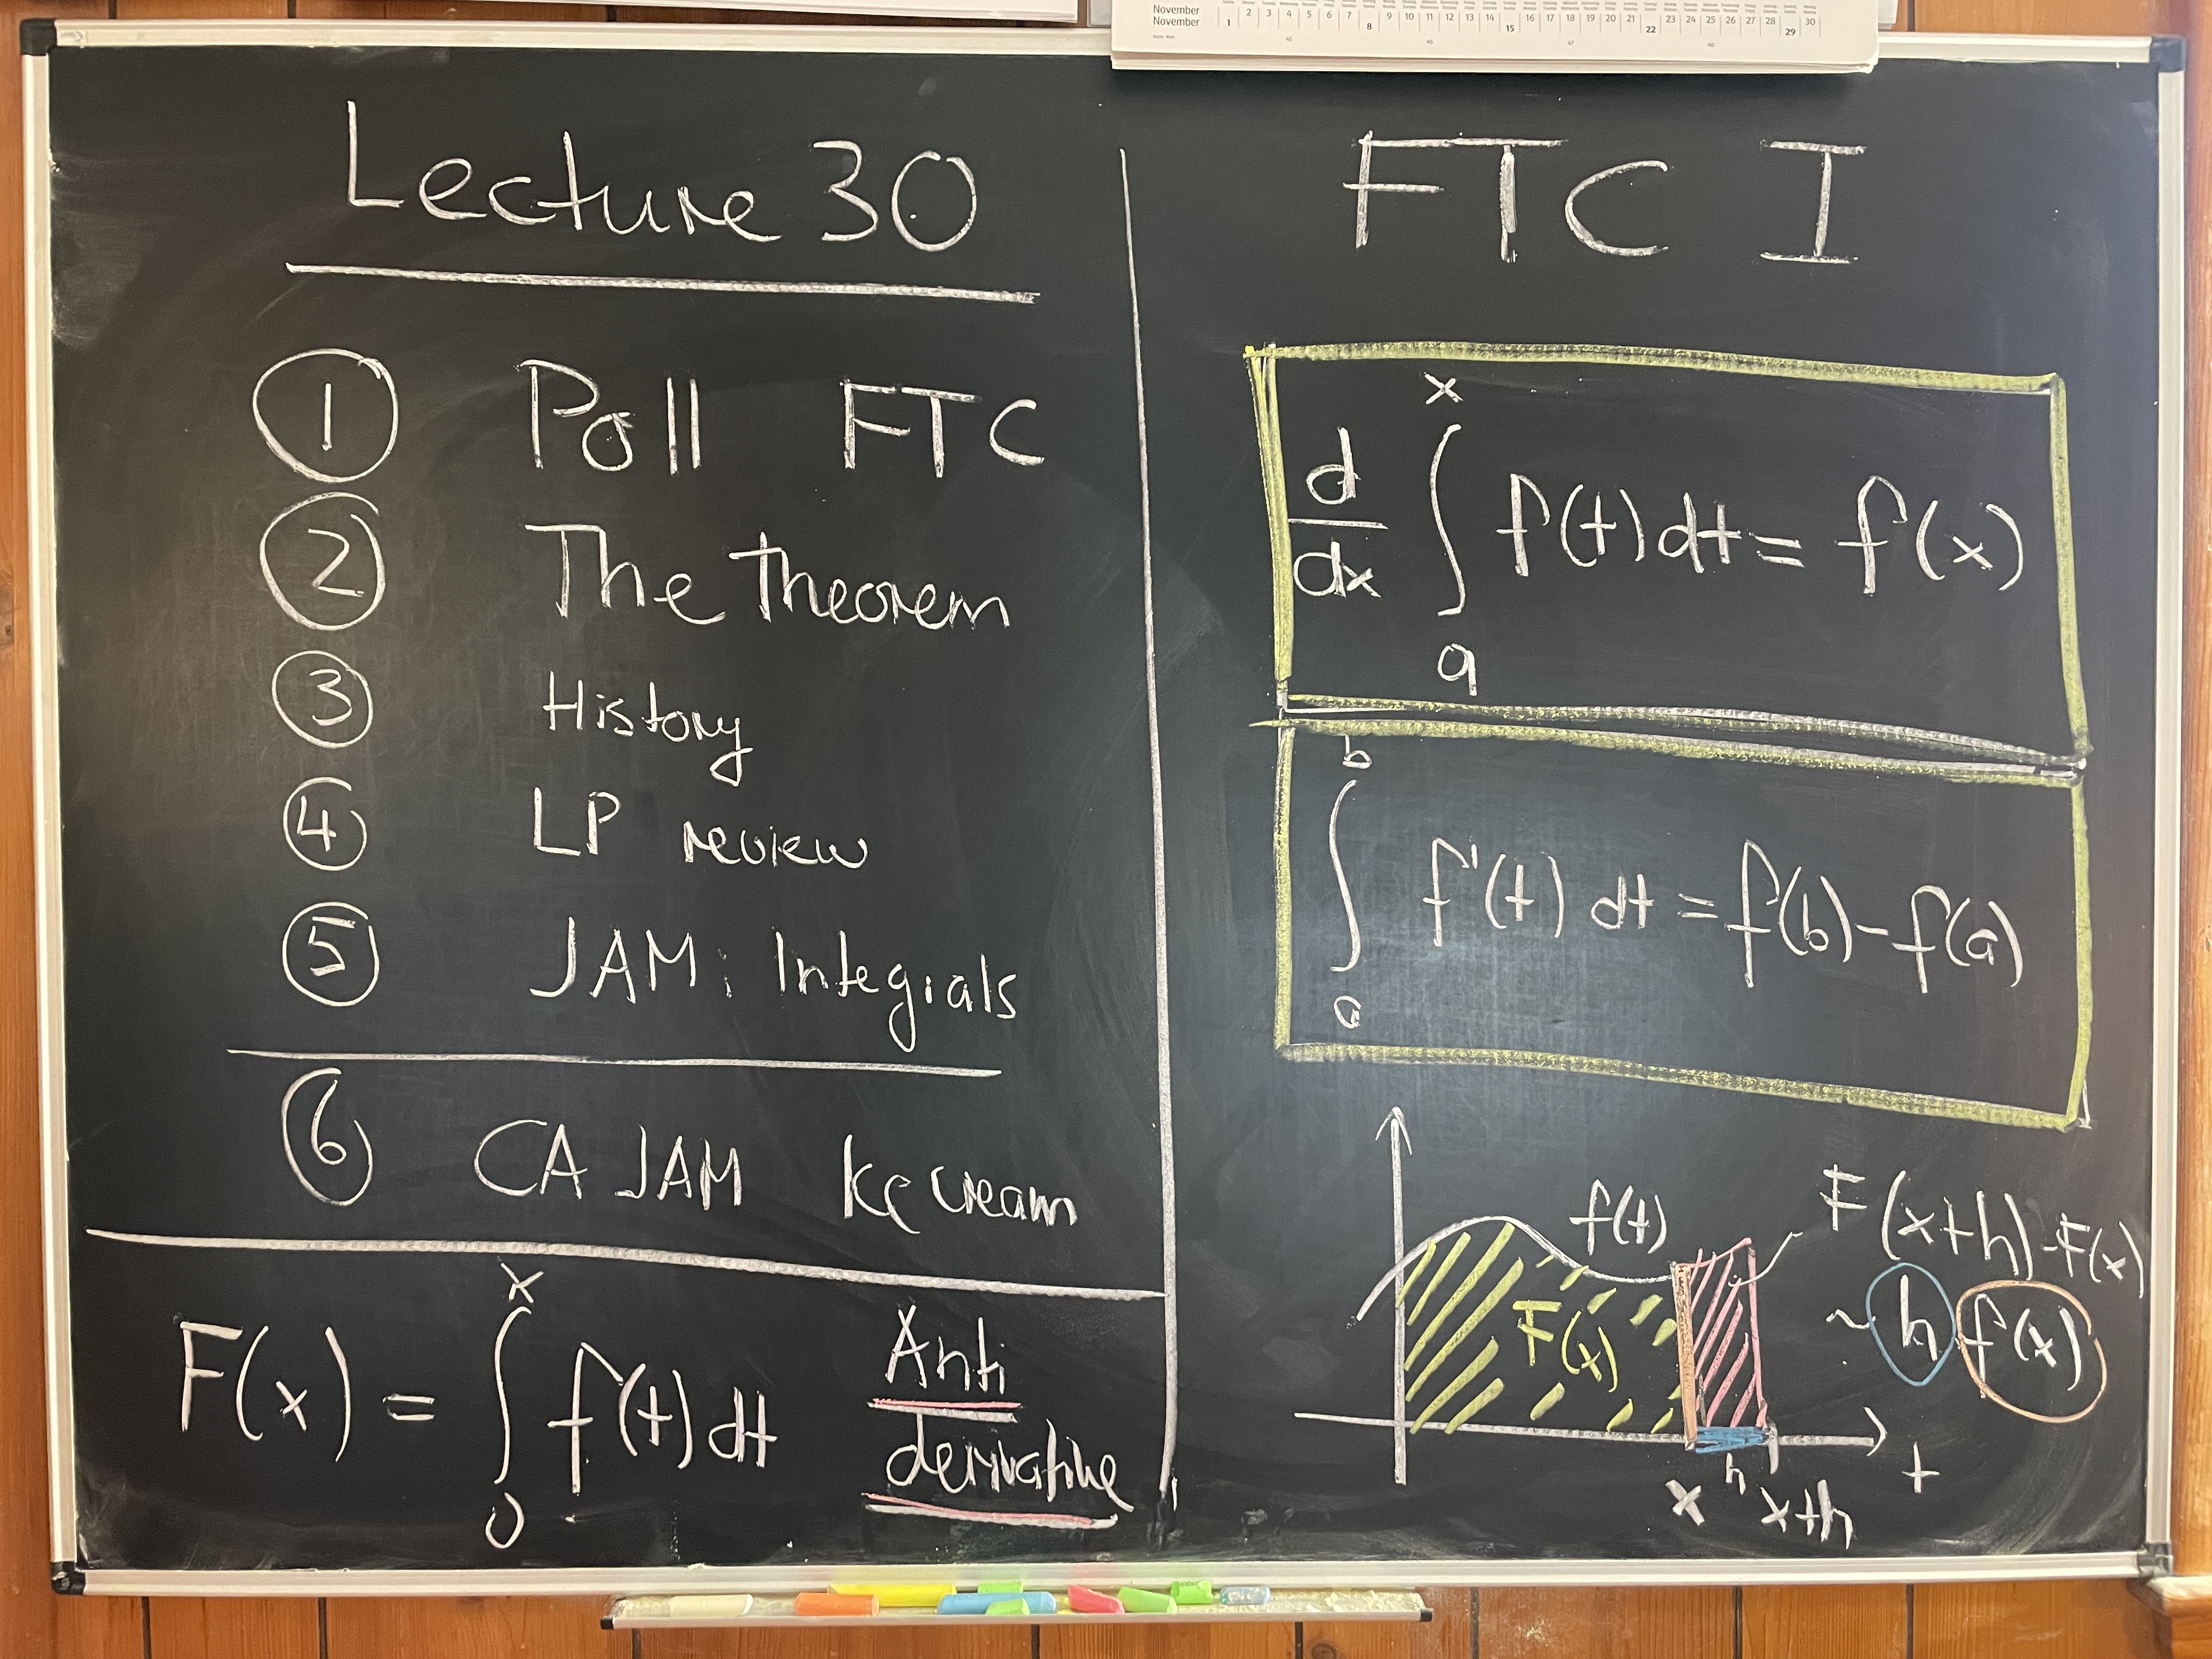 November
November
1 2 3 4 5 6 7 8 9 10 11 12 13 14 15 16 17 18 19 20 21 22 23 24 25 26 27 28 29 30
45 46 47 48
Lecture 30
① Poll FTC
② The theorem
③ History
④ LP review
⑤ JAM: Integrals
⑥ CA JAM Ice cream
F(x) = ∫₀ˣ f(t) dt
Anti
derivative
FTC I
d/dx ∫ₐˣ f(t) dt = f(x)
∫ₐᵇ f'(t) dt = f(b) - f(a)
f(t)
F(x+h) - F(x)
~ h f(x)
F(x)
h
x x+h t